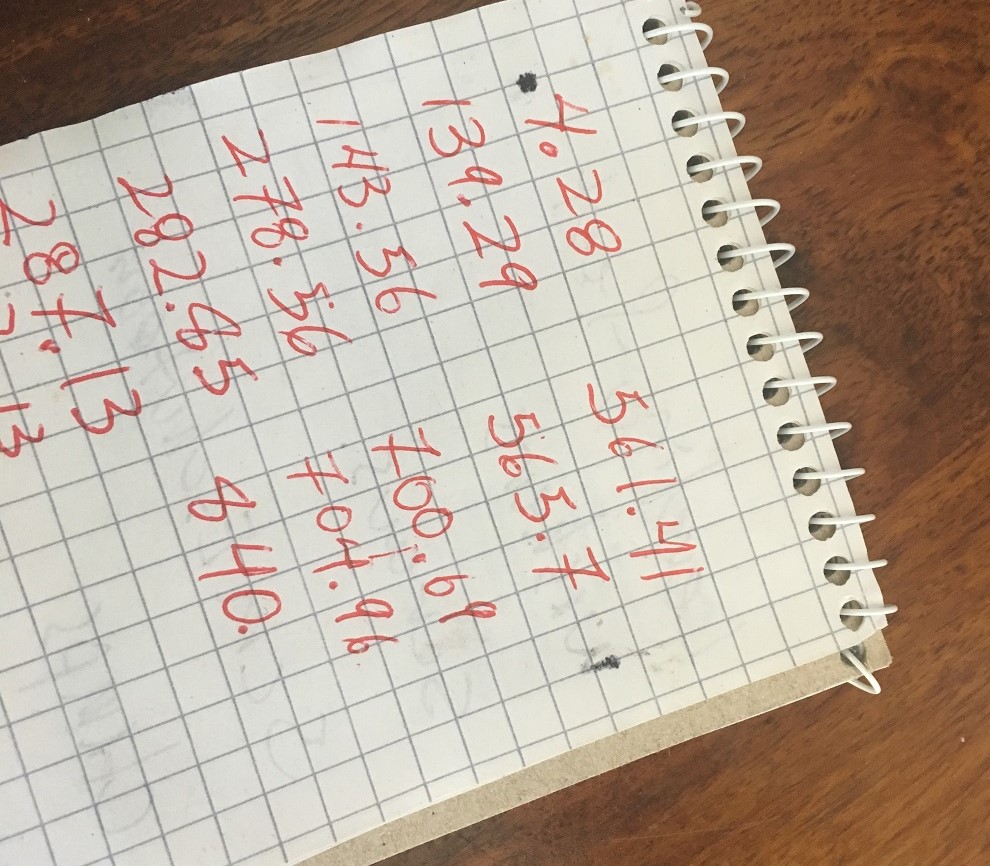 4.28
139.29
143.56
278.56
282.85
287.13
561.41
565.7
700.69
704.96
840.